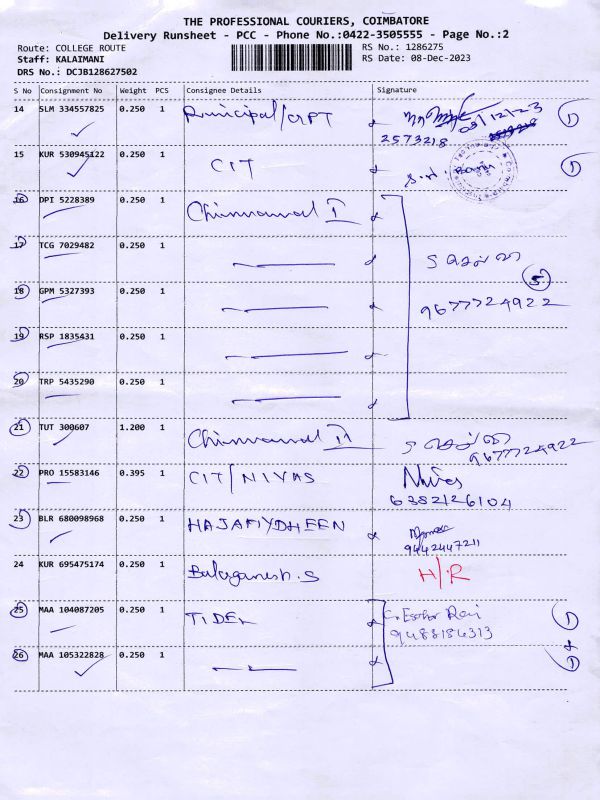 THE PROFESSIONAL COURIERS, COIMBATORE
Delivery Runsheet - PCC - Phone No.:0422-3505555 - Page No.:2
Route: COLLEGE ROUTE
RS No.: 1286275
Staff: KALAIMANI
RS Date: 08-Dec-2023
DRS No.: DCJB128627502
S No Consignment No Weight PCS Consignee Details Signature
14 SLM 334557825 0.250 1 Principal/CRPT 08/12/23 1
2573218
15 KUR 530945122 0.250 1 CIT 1
16 DPI 5228389 0.250 1 Chinnamal I
17 TCG 7029482 0.250 1
5
18 GPM 5327393 0.250 1 9677724922
19 RSP 1835431 0.250 1
20 TRP 5435290 0.250 1
21 TUT 300607 1.200 1 Chinnamal II 9677724922
22 PRO 15583146 0.395 1 CIT/NIVAS Nivas
6382126104
23 BLR 680098968 0.250 1 HAJAFIYDHEEN
9442447211
24 KUR 695475174 0.250 1 Balaganesh.S H/R
25 MAA 104087205 0.250 1 TIDEL 1
9488184313
26 MAA 105322828 0.250 1 1